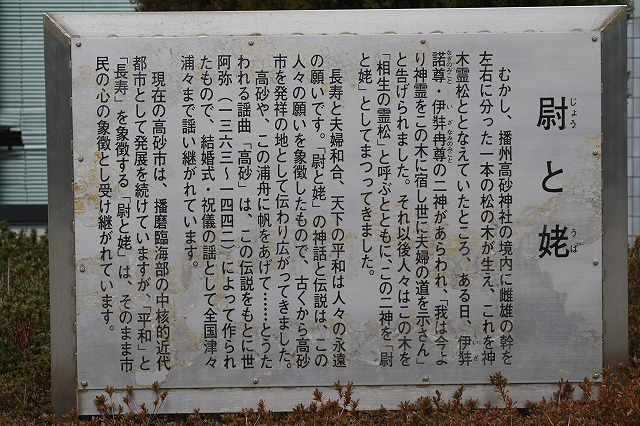 尉と姥
じょう
うば
むかし、播州高砂神社の境内に雌雄の幹を
左右に分った一本の松の木が生え、これを神
木霊松ととなえていたところ、ある日、伊弉
諾尊・伊弉冉尊の二神があらわれ、「我は今よ
り神霊をこの木に宿し世に夫婦の道を示さん」
と告げられました。それ以後人々はこの木を
「相生の霊松」と呼ぶとともに、この二神を「尉
と姥」としてまつってきました。
長寿と夫婦和合、天下の平和は人々の永遠
の願いです。「尉と姥」の神話と伝説は、この
人々の願いを象徴したもので、古くから高砂
市を発祥の地として伝わり広がってきました。
高砂や、この浦舟に帆をあげて……とうた
われる謡曲「高砂」は、この伝説をもとに世
阿弥（一三六三〜一四四二）によって作られ
たもので、結婚式・祝儀の謡として全国津々
浦々まで謡い継がれています。
現在の高砂市は、播磨臨海部の中核的近代
都市として発展を続けていますが、「平和」と
「長寿」を象徴する「尉と姥」は、そのまま市
民の心の象徴とし受け継がれています。